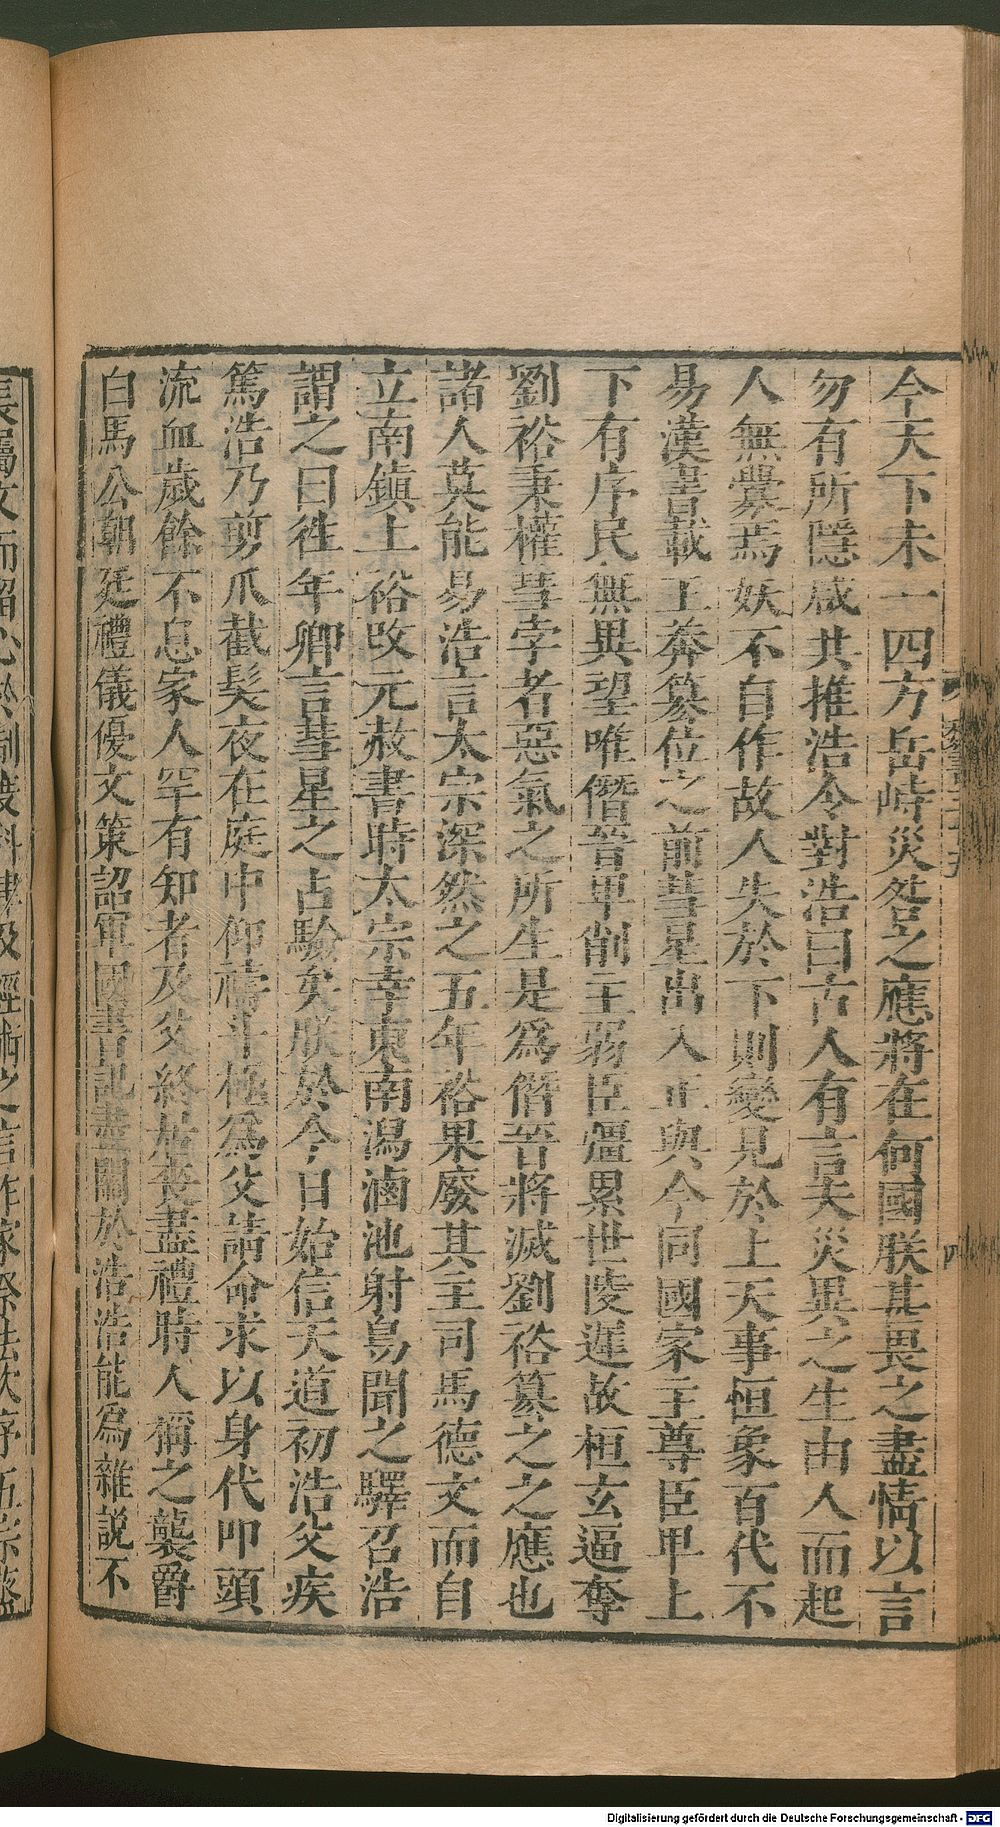 今天下未一四方岳峙災咎之應將在何國朕甚畏之盡情以言
勿有所隱咸共推浩令對浩曰古人有言夫災異之生由人而起
人無釁焉妖不自作故人失於下則變見於上天事恒象百代不
易漢書載王莽篡位之前彗星出入正與今同國家主尊臣卑上
下有序民無異望唯僭晉卑削主弱臣彊累世陵遲故桓玄逼奪
劉裕秉權彗孛者惡氣之所生是為僭晉將滅劉裕篡之之應也
諸人莫能易浩言太宗深然之五年裕果廢其主司馬德文而自
立南鎮上裕改元赦書時太宗幸東南潟滷池射鳥聞之驛召浩
謂之曰徃年卿言彗星之占驗矣朕於今日始信天道初浩父疾
篤浩乃剪爪截髮夜在庭中仰禱斗極為父請命求以身代叩頭
流血歲餘不息家人罕有知者及父終居喪盡禮時人稱之襲爵
白馬公朝廷禮儀優文策詔軍國書記盡關於浩浩能為雜說不
長屬文而留心於制度科律及經術之言作家祭法次序五宗蒸
Digitalisierung gefördert durch die Deutsche Forschungsgemeinschaft - DFG